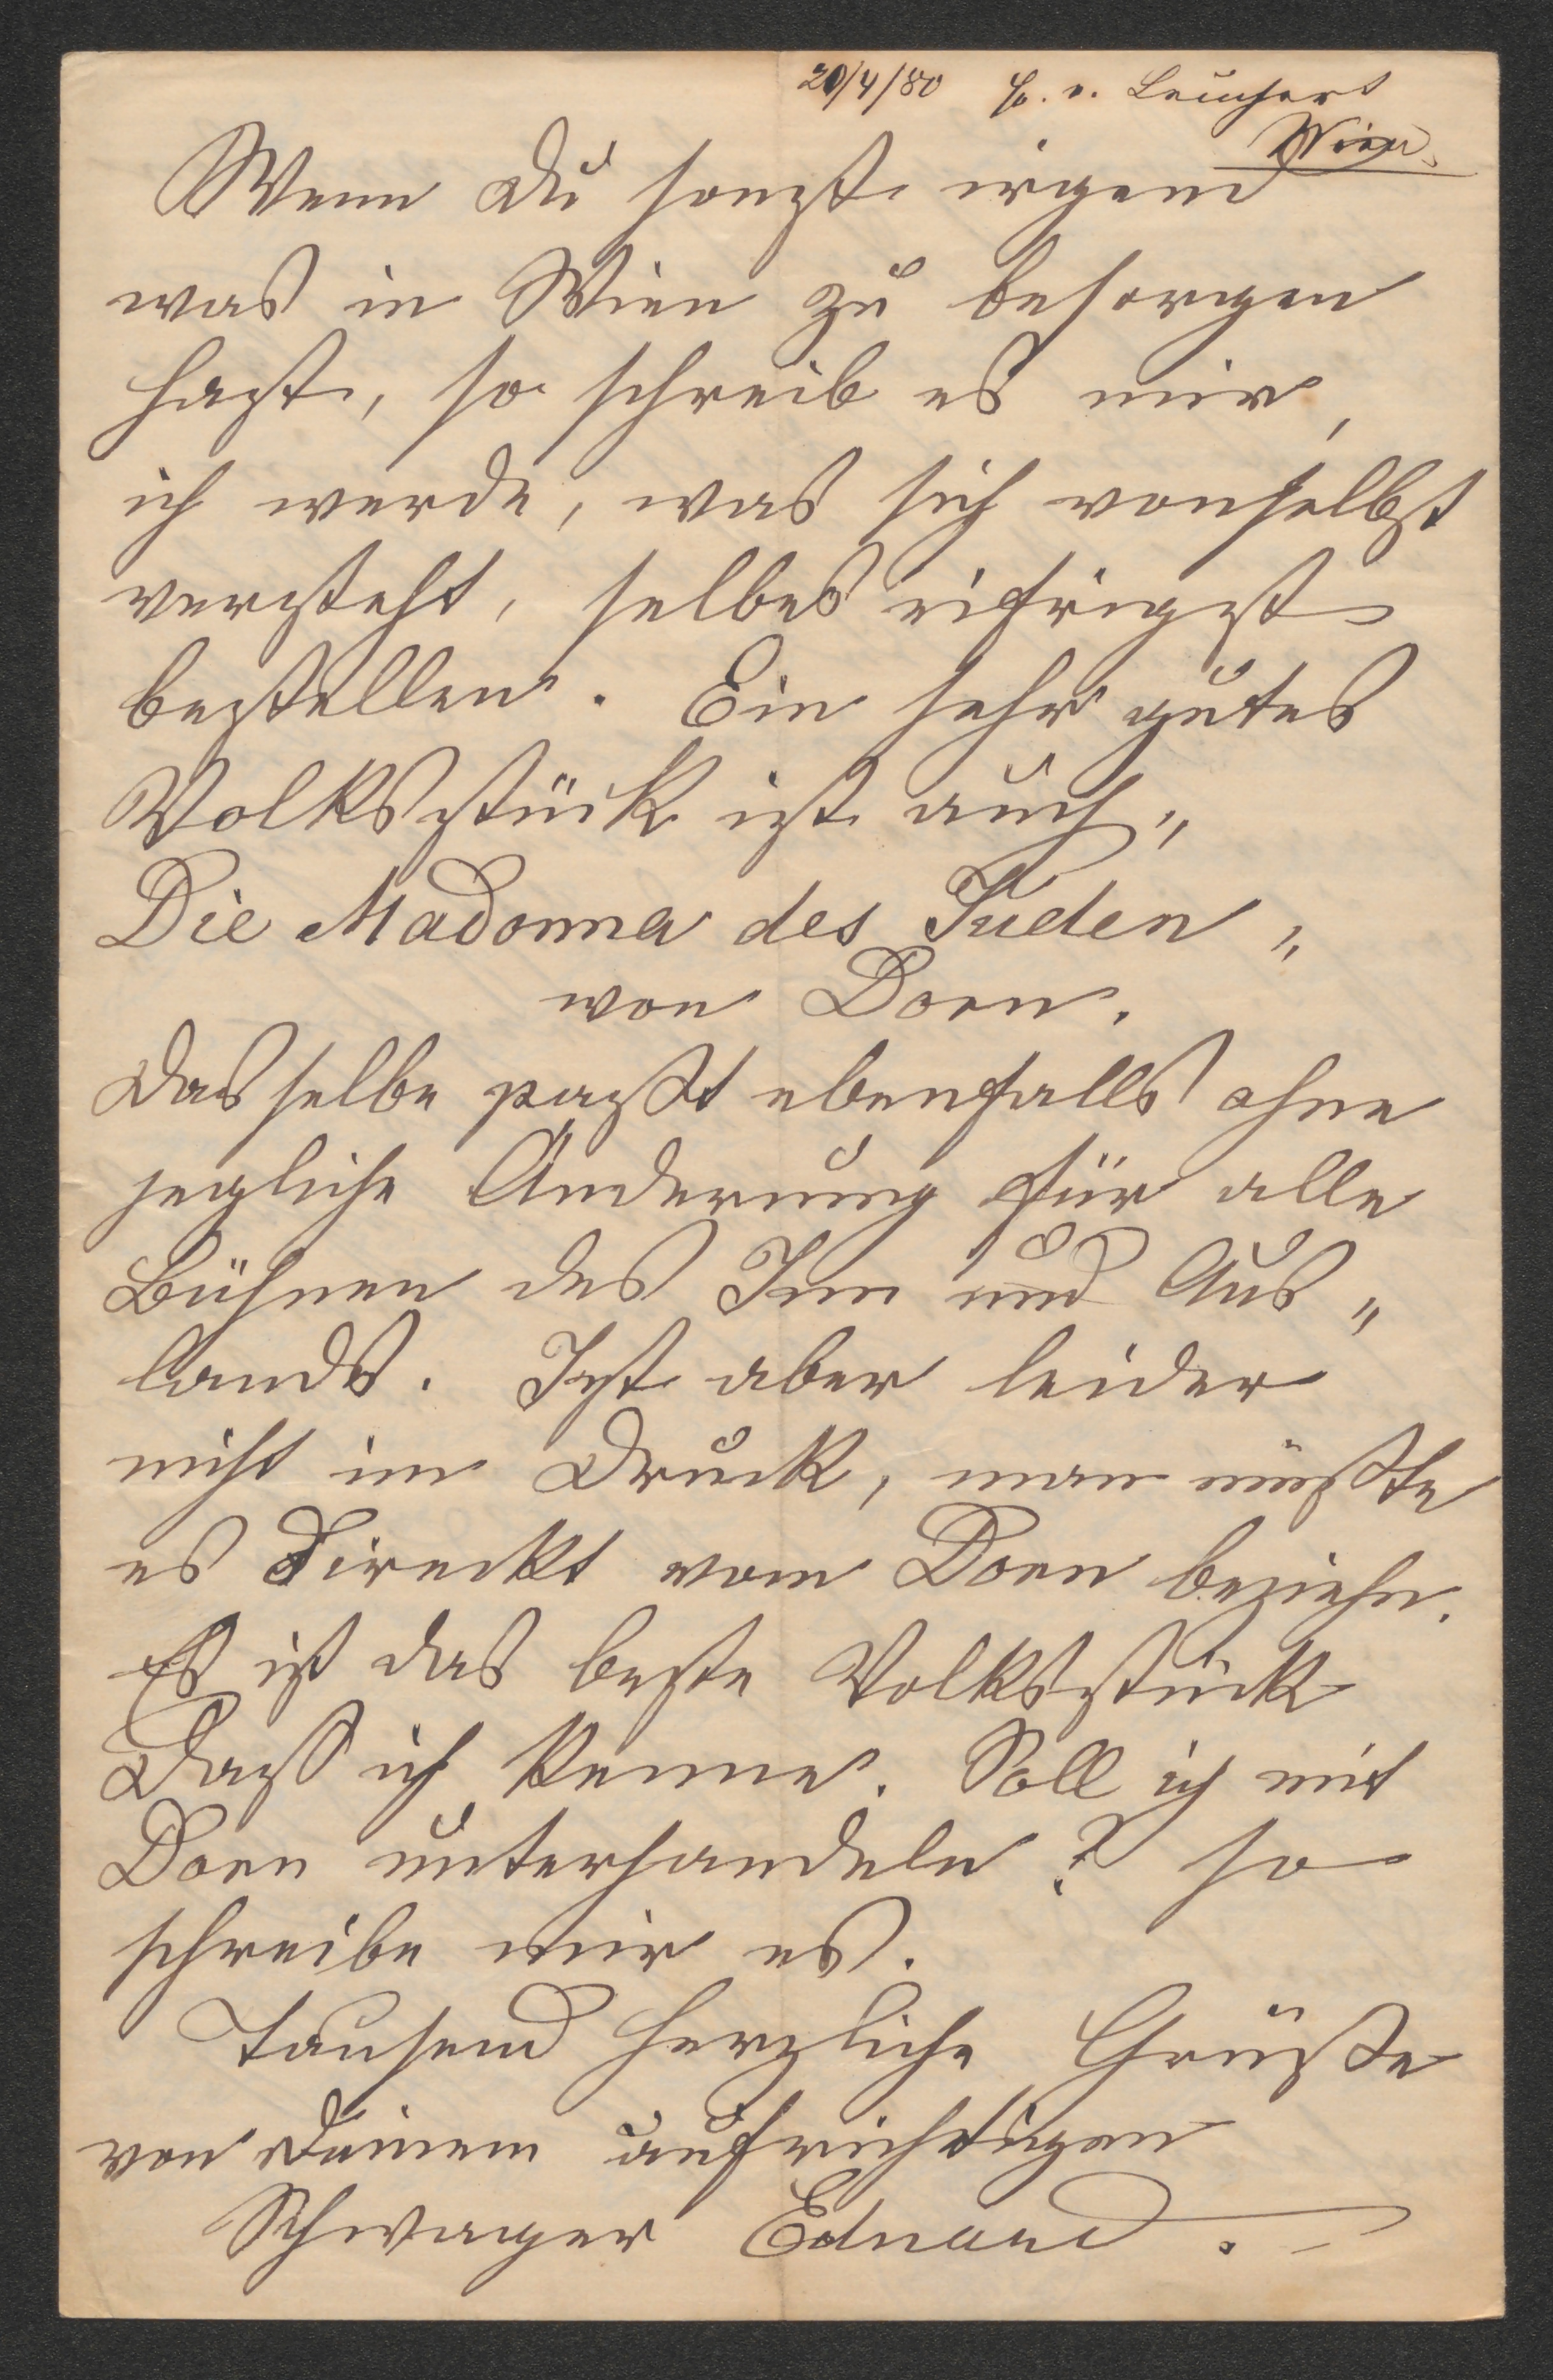 20/4/80 H. v. Leuchert
Wien.
Wenn Du sonst irgend
was in Wien zu besorgen
hast, so schreib es mir,
ich werde, was sich vonselbst
versteht, selbes eifrigst
bestellen. Ein sehr gutes
Volksstück ist auch "
Die Madonna des Juden "
von Dorn.
Dasselbe passt ebenfalls ohne
jegliche Änderung für alle
Bühnen des Inn und Aus "
lands. Ist aber leider
nicht im Druck, man müsste
es direckt vom Dorn beziehn.
Es ist das beste Volksstück
Dass ich kenne. Soll ich mit
Dorn unterhandeln? so
schreibe mir es.
Tausend herzliche Grüsse
von Deinem aufrichtigen
Schwager Eduard.